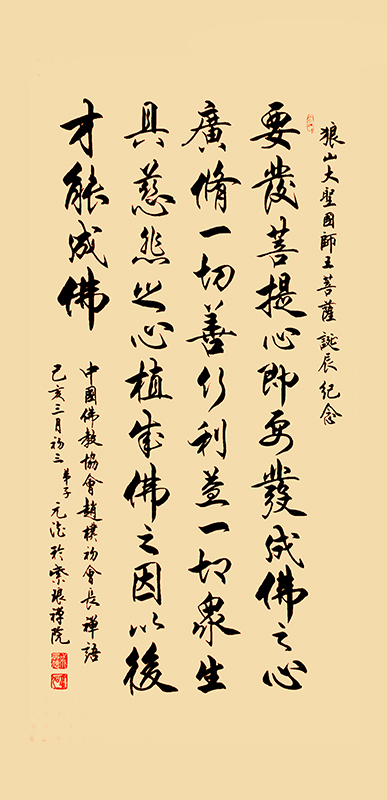 狼山大聖國師王菩薩誕辰紀念
要發菩提心即要發成佛之心
廣脩一切善行利益一切眾生
具慈悲之心植成佛之因以後
才能成佛
中國佛教協會趙樸初會長禪語
己亥三月初三弟子元於紫琅禪院